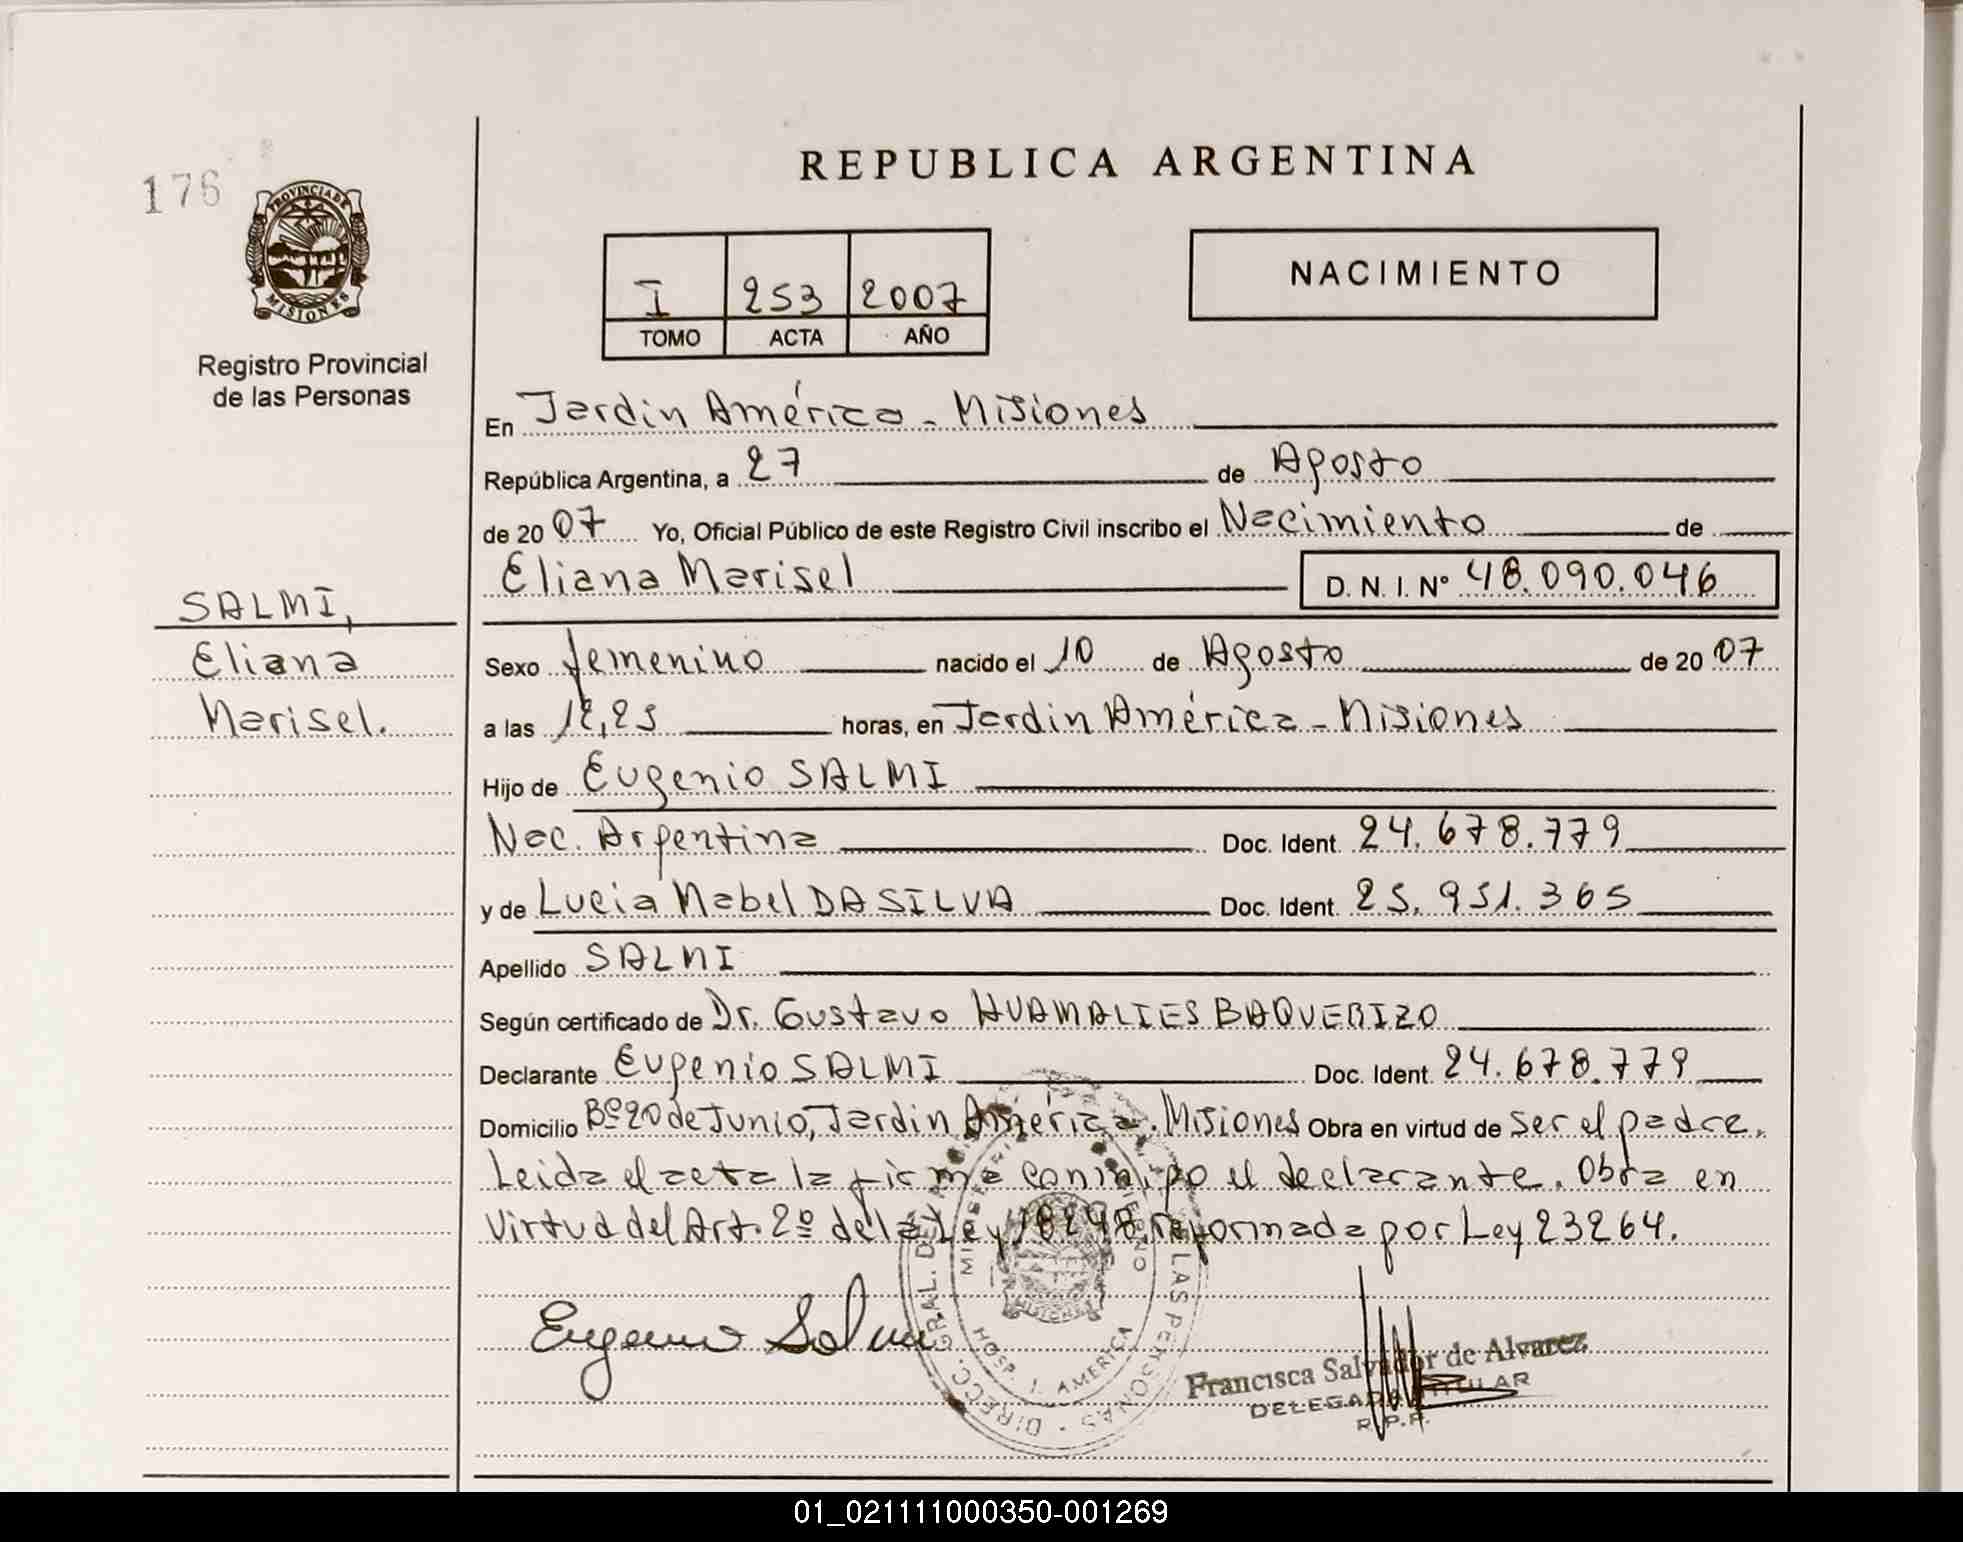 176
PROVINCIA DE
MISIONES
Registro Provincial
de las Personas
SALMI,
Eliana
Marisel.
REPUBLICA ARGENTINA
I 253 2007
TOMO ACTA AÑO
NACIMIENTO
En Jardin América - Misiones
República Argentina, a 27 de Agosto
de 20 07 Yo, Oficial Público de este Registro Civil inscribo el Nacimiento de
Eliana Marisel D. N. I. Nº 48.090.046
Sexo femenino nacido el 10 de Agosto de 20 07
a las 12,25 horas, en Jardin América - Misiones
Hijo de Eugenio SALMI
Nac. Argentina Doc. Ident. 24.678.779
y de Lucia Mabel DA SILVA Doc. Ident. 25.951.365
Apellido SALMI
Según certificado de Dr. Gustavo HUAMALIES BAQUERIZO
Declarante Eugenio SALMI Doc. Ident. 24.678.779
Domicilio Bº 20 de Junio, Jardin América. Misiones Obra en virtud de ser el padre.
Leida el acta la firma conmigo el declarante. Obra en
Virtud del Art. 2º de la Ley 18248 reformada por Ley 23264.
Eugenio Salmi
DIRECC. GRAL. DE LAS PERSONAS
HOSP. J. AMERICA
Francisca Salvador de Alvarez
DELEGADA TITULAR
R.P.P.
01_021111000350-001269